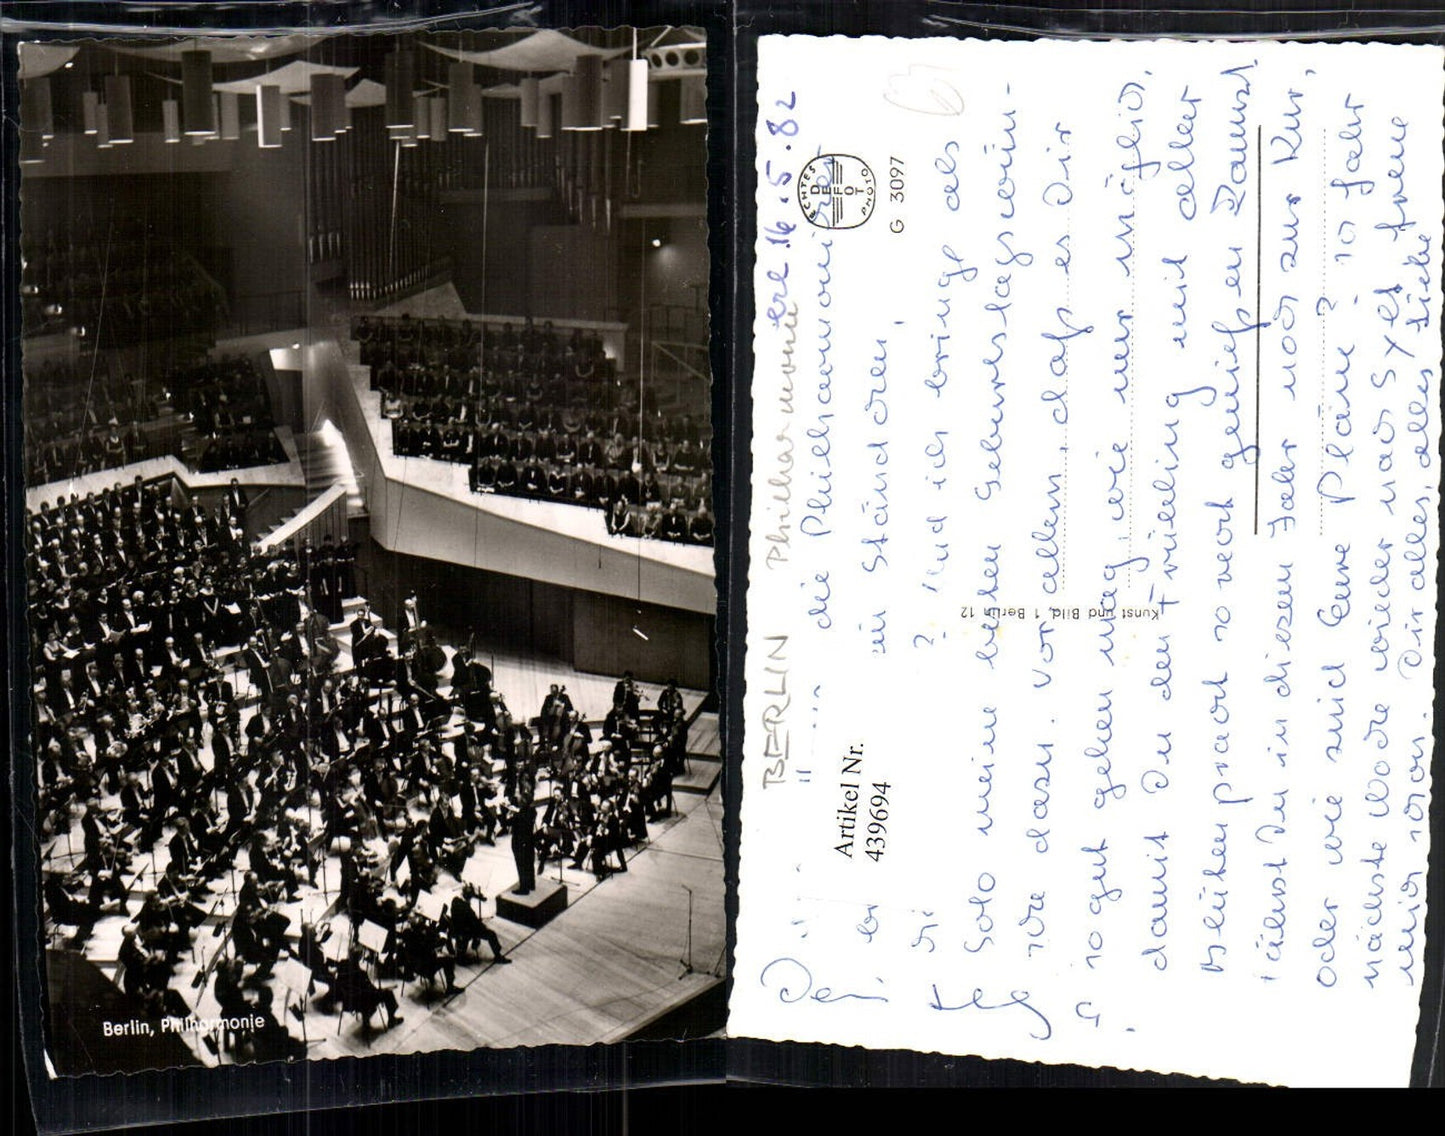 Berlin, Philharmonie
BERLIN Philharmonie
erl. 16.5.82
die Philharmoniker
ein Ständchen,
? Und ich bringe als
Solo meine besten Geburtstagswün-
dazu. Vor allem, daß es Dir
so gut gehen mag, wie nur möglich,
damit Du den Frühling mit all er
Blütenpracht so recht genießen kannst.
Fährst Du in diesem Jahr noch zur Kur,
oder wie sind Eure Pläne? Ich fahr
nächste Woche wieder nach Sylt, freue
mich schon. Dir alles, alles Liebe
ECHTES
DEFOT
PHOTO
G 3097
Kunst und Bild, 1 Berlin 12
Artikel Nr.
439694